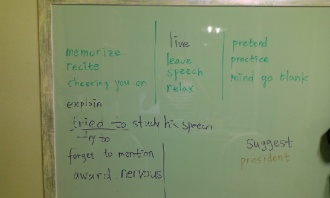 memorize
recite
cheering you on
explain
tried to study his speech
try to
forget to mention
award nervous
live
leave
speech
relax
pretend
practice
mind go blank
suggest
president